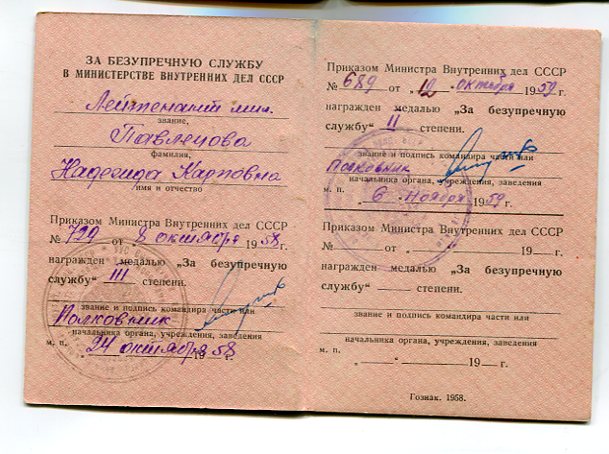 ЗА БЕЗУПРЕЧНУЮ СЛУЖБУ
В МИНИСТЕРСТВЕ ВНУТРЕННИХ ДЕЛ СССР
Лейтенант мил.
звание,
Павленкова
фамилия,
Надежда Карповна
имя и отчество
Приказом Министра Внутренних дел СССР
№ 799 от „8 октября 1958 г.
награжден медалью „За безупречную
службу“ III степени.
звание и подпись командира части или
Полковник
начальника органа, учреждения, заведения
м. п. „24 октября 1958 г.
Приказом Министра Внутренних дел СССР
№ 689 от „12 октября 1959 г.
награжден медалью „За безупречную
службу“ II степени.
звание и подпись командира части или
Полковник
начальника органа, учреждения, заведения
м. п. „6 Ноября 1959 г.
Приказом Министра Внутренних дел СССР
№ от „ “ 19 г.
награжден медалью „За безупречную
службу“ степени.
звание и подпись командира части или
начальника органа, учреждения, заведения
м. п. „ “ 19 г.
Гознак. 1958.